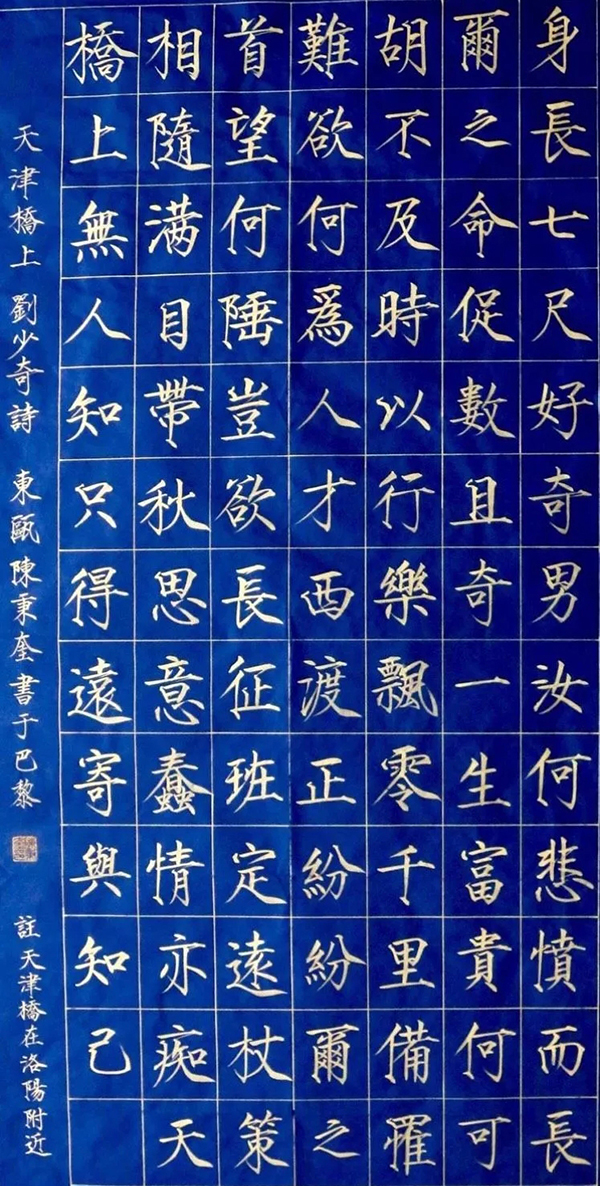 身長七尺好奇男汝何悲憤而長
爾之命促數且奇一生富貴何可
胡不及時以行樂飄零千里備罹
難欲何爲人才西渡正紛紛爾之
首望何陲豈欲長征班定遠杖策
相隨满目帶秋思意蠢情亦痴天
橋上無人知只得遠寄與知己
天津橋上 劉少奇詩 東甌陳秉奎書于巴黎 註 天津橋在洛陽附近